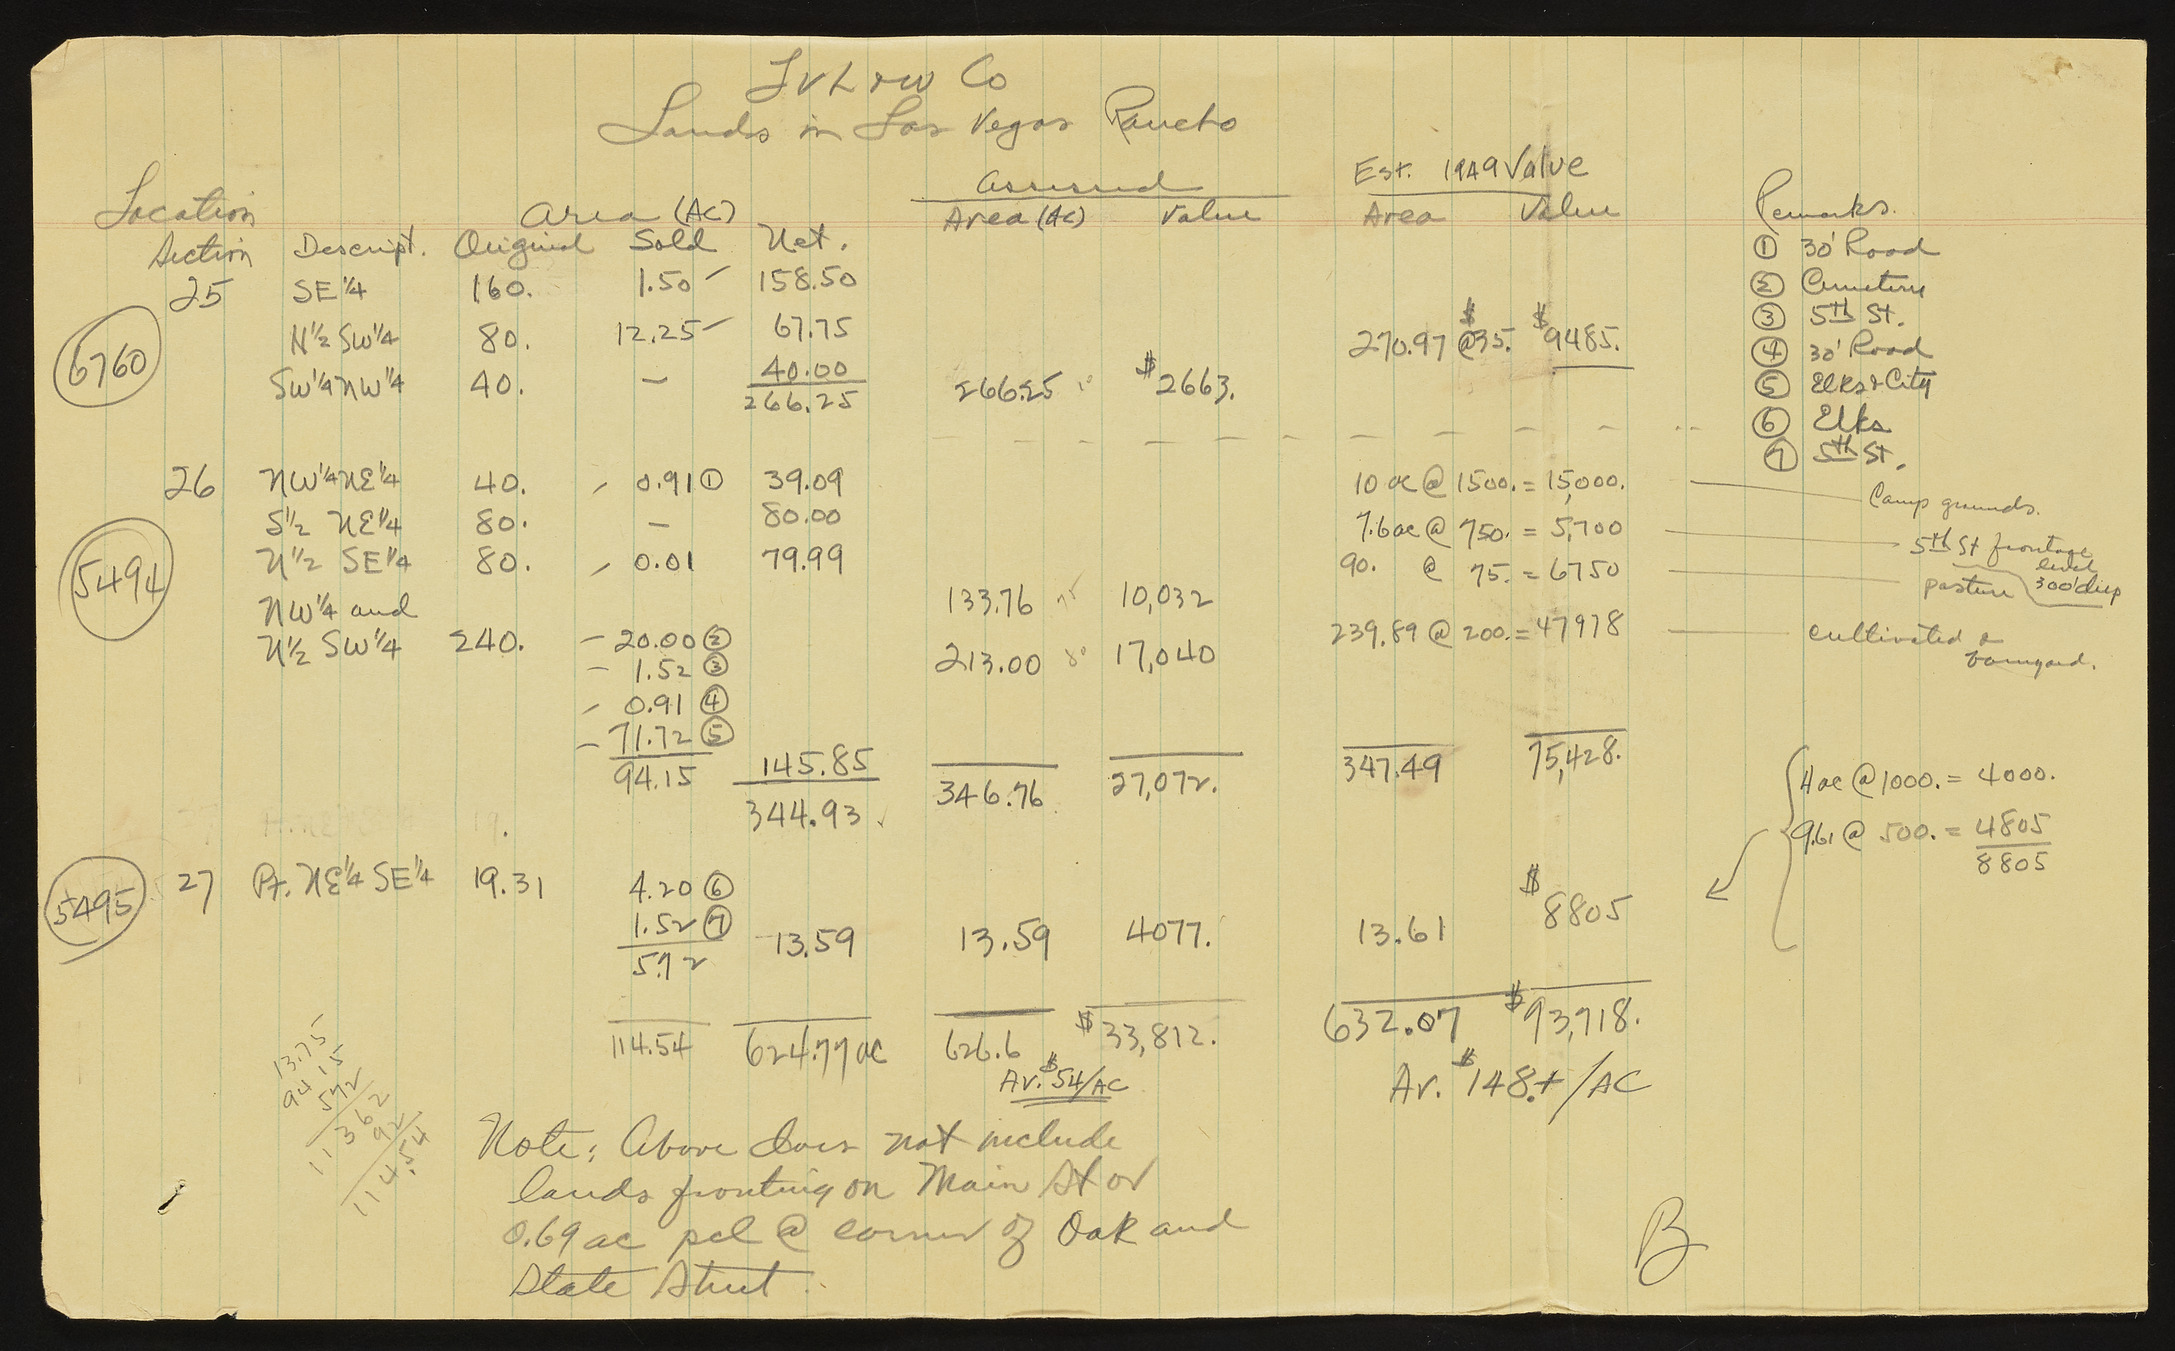 L V L & W Co
Lands in Las Vegas Rancho
Location Area (AC) Assessed Est. 1949 Value
Section Descript. Original Sold Net. Area (AC) Value Area Value Remarks.
① 30' Road
② Cemetery
③ 5th St.
④ 30' Road
⑤ Elks & City
⑥ Elks
⑦ 5th St.
25 SE 1/4 160. 1.50 158.50
6760 N 1/2 SW 1/4 80. 12.25 67.75 270.97 @ $35. $9485.
SW 1/4 NW 1/4 40. — 40.00
266.25 266.25 $2663.
26 NW 1/4 NE 1/4 40. 0.91 ① 39.09 10 ac @ 1500. = 15,000. Camp grounds.
S 1/2 NE 1/4 80. — 80.00 7.6 ac @ 750. = 5,700 5th St frontage level 300' deep
5494 N 1/2 SE 1/4 80. 0.01 79.99 90. @ 75. = 6750 pasture
NW 1/4 and 133.76 10,032
N 1/2 SW 1/4 240. 20.00 ② 213.00 80 17,040 239.89 @ 200. = 47978 cultivated & barnyard.
1.52 ③
0.91 ④
71.72 ⑤
94.15 145.85
344.93 346.76 27,072. 347.49 75,428.
4 ac @ 1000. = 4000.
9.61 @ 500. = 4805
8805
5495 27 Pt. NE 1/4 SE 1/4 19.31 4.20 ⑥ $8805
1.52 ⑦ 13.59 13.59 4077. 13.61
5.72
114.54 624.77 ac 626.6 $33,812. 632.07 $93,718.
Av. $54/AC Av. $148.+/AC
13.75
94.15
572
11362
92
114.54
Note: Above does not include
lands fronting on Main St or
0.69 ac pcl @ corner of Oak and
State Street.
B